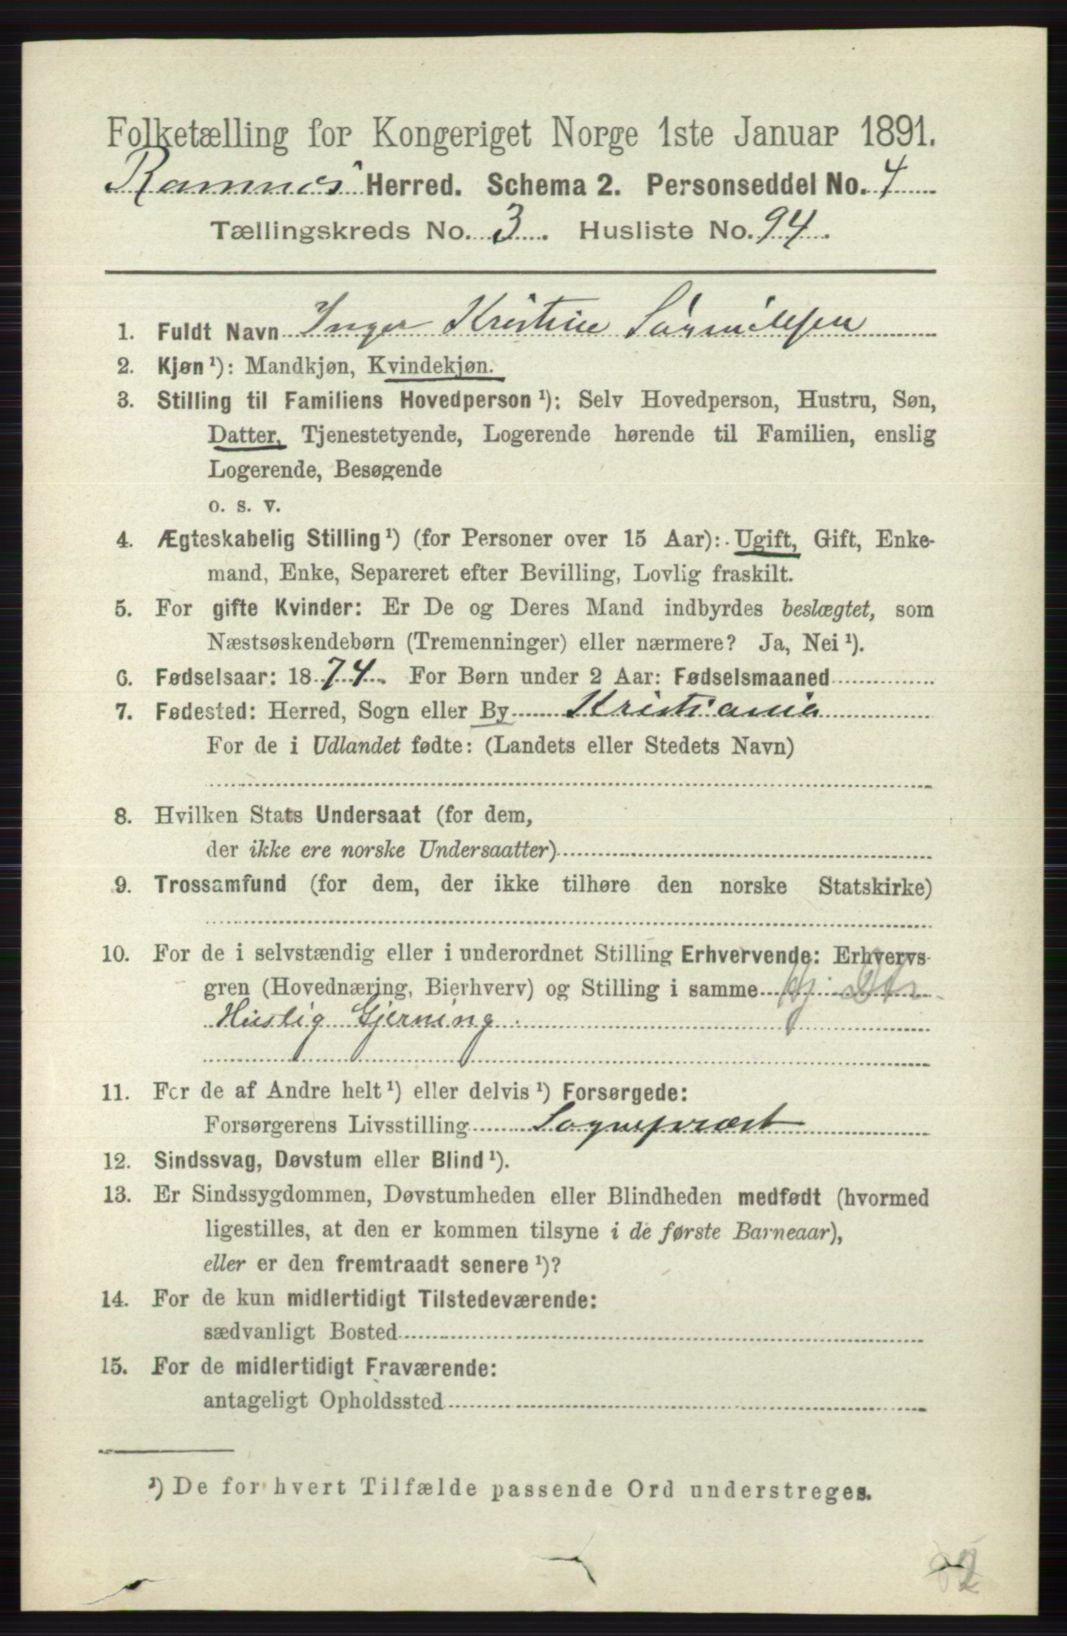 Folketælling for Kongeriget Norge 1ste Januar 1891.
Ramnes Herred. Schema 2. Personseddel No. 4
Tællingskreds No. 3. Husliste No. 94.
1. Fuldt Navn Inger Kristine
2. Kjøn ¹): Mandkjøn, Kvindekjøn.
3. Stilling til Familiens Hovedperson ¹): Selv Hovedperson, Hustru, Søn,
Datter, Tjenestetyende, Logerende hørende til Familien, enslig
Logerende, Besøgende
o. s. v.
4. Ægteskabelig Stilling ¹) (for Personer over 15 Aar): Ugift, Gift, Enke-
mand, Enke, Separeret efter Bevilling, Lovlig fraskilt.
5. For gifte Kvinder: Er De og Deres Mand indbyrdes beslægtet, som
Næstsøskendebørn (Tremenninger) eller nærmere? Ja, Nei ¹).
6. Fødselsaar: 1874. For Børn under 2 Aar: Fødselsmaaned
7. Fødested: Herred, Sogn eller By Kristiania
For de i Udlandet fødte: (Landets eller Stedets Navn)
8. Hvilken Stats Undersaat (for dem,
der ikke ere norske Undersaatter)
9. Trossamfund (for dem, der ikke tilhøre den norske Statskirke)
10. For de i selvstændig eller i underordnet Stilling Erhvervende: Erhvervs-
gren (Hovednæring, Bierhverv) og Stilling i samme
Huslig Gjerning.
11. For de af Andre helt ¹) eller delvis ¹) Forsørgede:
Forsørgerens Livsstilling Sognepræst
12. Sindssvag, Døvstum eller Blind ¹).
13. Er Sindssygdommen, Døvstumheden eller Blindheden medfødt (hvormed
ligestilles, at den er kommen tilsyne i de første Barneaar),
eller er den fremtraadt senere ¹)?
14. For de kun midlertidigt Tilstedeværende:
sædvanligt Bosted
15. For de midlertidigt Fraværende:
antageligt Opholdssted
¹) De for hvert Tilfælde passende Ord understreges.